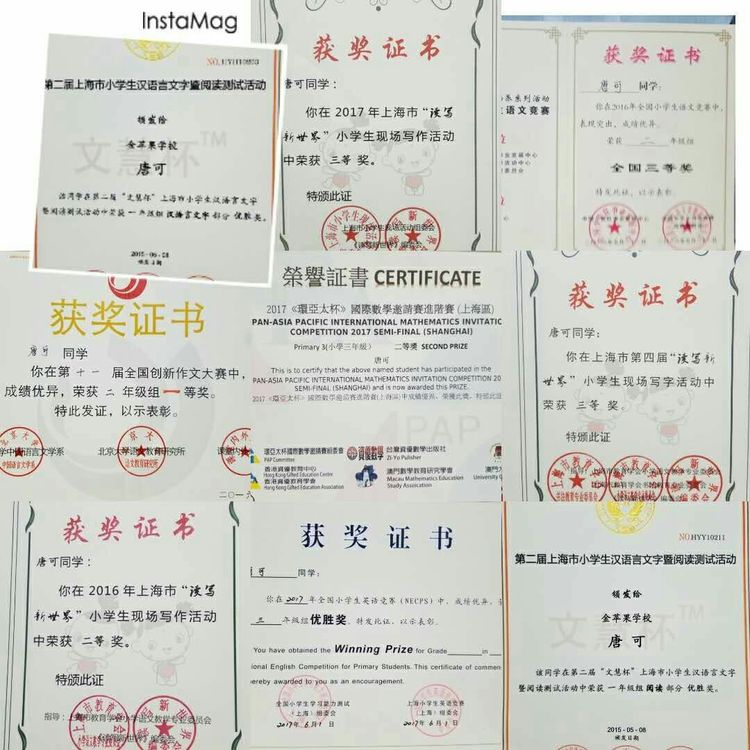 InstaMag
NO.HYY10203
第二届上海市小学生汉语言文字暨阅读测试活动
颁发给
金苹果学校
唐可
文慧杯™
该同学在第二届“文慧杯”上海市小学生汉语言文字
暨阅读测试活动中荣获一年级组汉语言文字部分优胜奖。
2015-05-08
颁发日期
获奖证书
唐可同学：
你在2017年上海市“读写
新世界”小学生现场写作活动
中荣获 三等 奖。
特颁此证
上海市小学生现场活动组委会
《读写新世界》编委会
系列活动
语文竞赛
获奖证书
唐可 同学：
你在2016年全国小学生语文竞赛中，
表现突出，成绩优异。
荣获 二 年级组
全国三等奖
特发此证，以示表彰。
获奖证书
唐可 同学
你在第 十一 届全国创新作文大赛中，
成绩优异，荣获 二 年级组 一 等奖。
特此发证，以示表彰。
北京大学语文教育研究所
二〇一六
榮譽証書 CERTIFICATE
2017《環亞太杯》國際數學邀請賽進階賽(上海區)
PAN-ASIA PACIFIC INTERNATIONAL MATHEMATICS INVITATIO
COMPETITION 2017 SEMI-FINAL (SHANGHAI)
Primary 3(小學三年級) 二等獎 SECOND PRIZE
唐可
This is to certify that the above named student has participated in the
PAN-ASIA PACIFIC INTERNATIONAL MATHEMATICS INVITATION COMPETITION 20
SEMI-FINAL (SHANGHAI) and is now awarded this PRIZE.
2017《環亞太杯》國際數學邀請賽進階賽(上海區)中成績優異，榮獲此獎，特頒此証
PAP
環亞太杯國際數學邀請賽組委會
PAP Committee
香港資優教育中心
Hong Kong Gifted Education Centre
香港資優教育學會
Hong Kong Gifted Education Association
台灣資優數學出版社
Zi-Yo Publisher
澳門數學教育研究學會
Macau Mathematics Education
Study Association
获奖证书
唐可同学：
你在上海市第四届“读写新
世界”小学生现场写字活动中
荣获 三等 奖。
特颁此证
获奖证书
唐可同学：
你在2016年上海市“读写
新世界”小学生现场写作活动
中荣获 二等 奖。
特颁此证
指导：上海市教育学会小学语文教学专业委员会
《读写新世界》编委会
获奖证书
可 同学：
你在 2017 年全国小学生英语竞赛（NECPS）中，成绩优异，
三 年级组优胜奖。特发此证，以示表彰。
You have obtained the Winning Prize for Grade in
ional English Competition for Primary Students. This certificate of commen
hereby awarded to you as an encouragement.
全国小学生学习能力测试
（上海）组委会
2017年6月1日
上海小学生英语竞赛
（上海）组委会
2017年6月1日
NO.HYY10211
第二届上海市小学生汉语言文字暨阅读测试活动
颁发给
金苹果学校
唐可
文慧杯™
该同学在第二届“文慧杯”上海市小学生汉语言文字
暨阅读测试活动中荣获一年级组阅读部分优胜奖。
2015-05-08
颁发日期